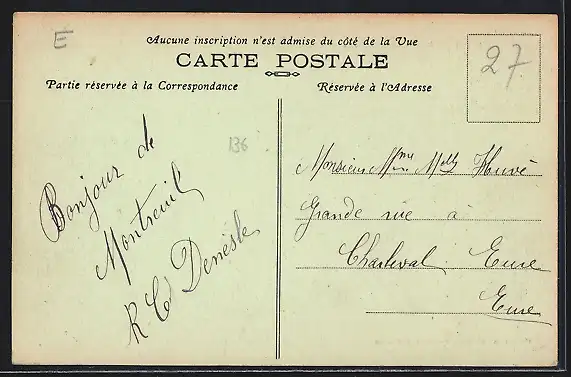 E
Aucune inscription n'est admise du côté de la Vue
CARTE POSTALE
27
Partie réservée à la Correspondance
Réservée à l'Adresse
136
Bonjour de
Montreuil
R Denesle
Monsieur Mme Melle Huvé
Grande rue à
Charleval Eure
Eure